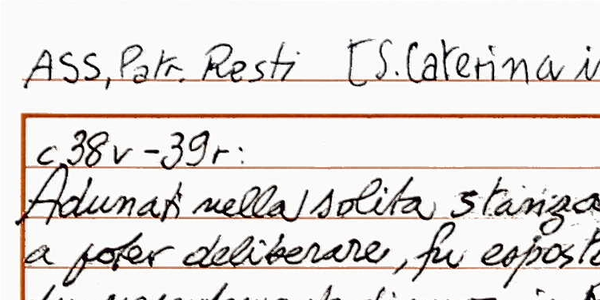 ASS, Patr. Resti [S. Caterina i
c. 38v - 39r:
Adunati nella solita stanza
a poter deliberare, fu espost